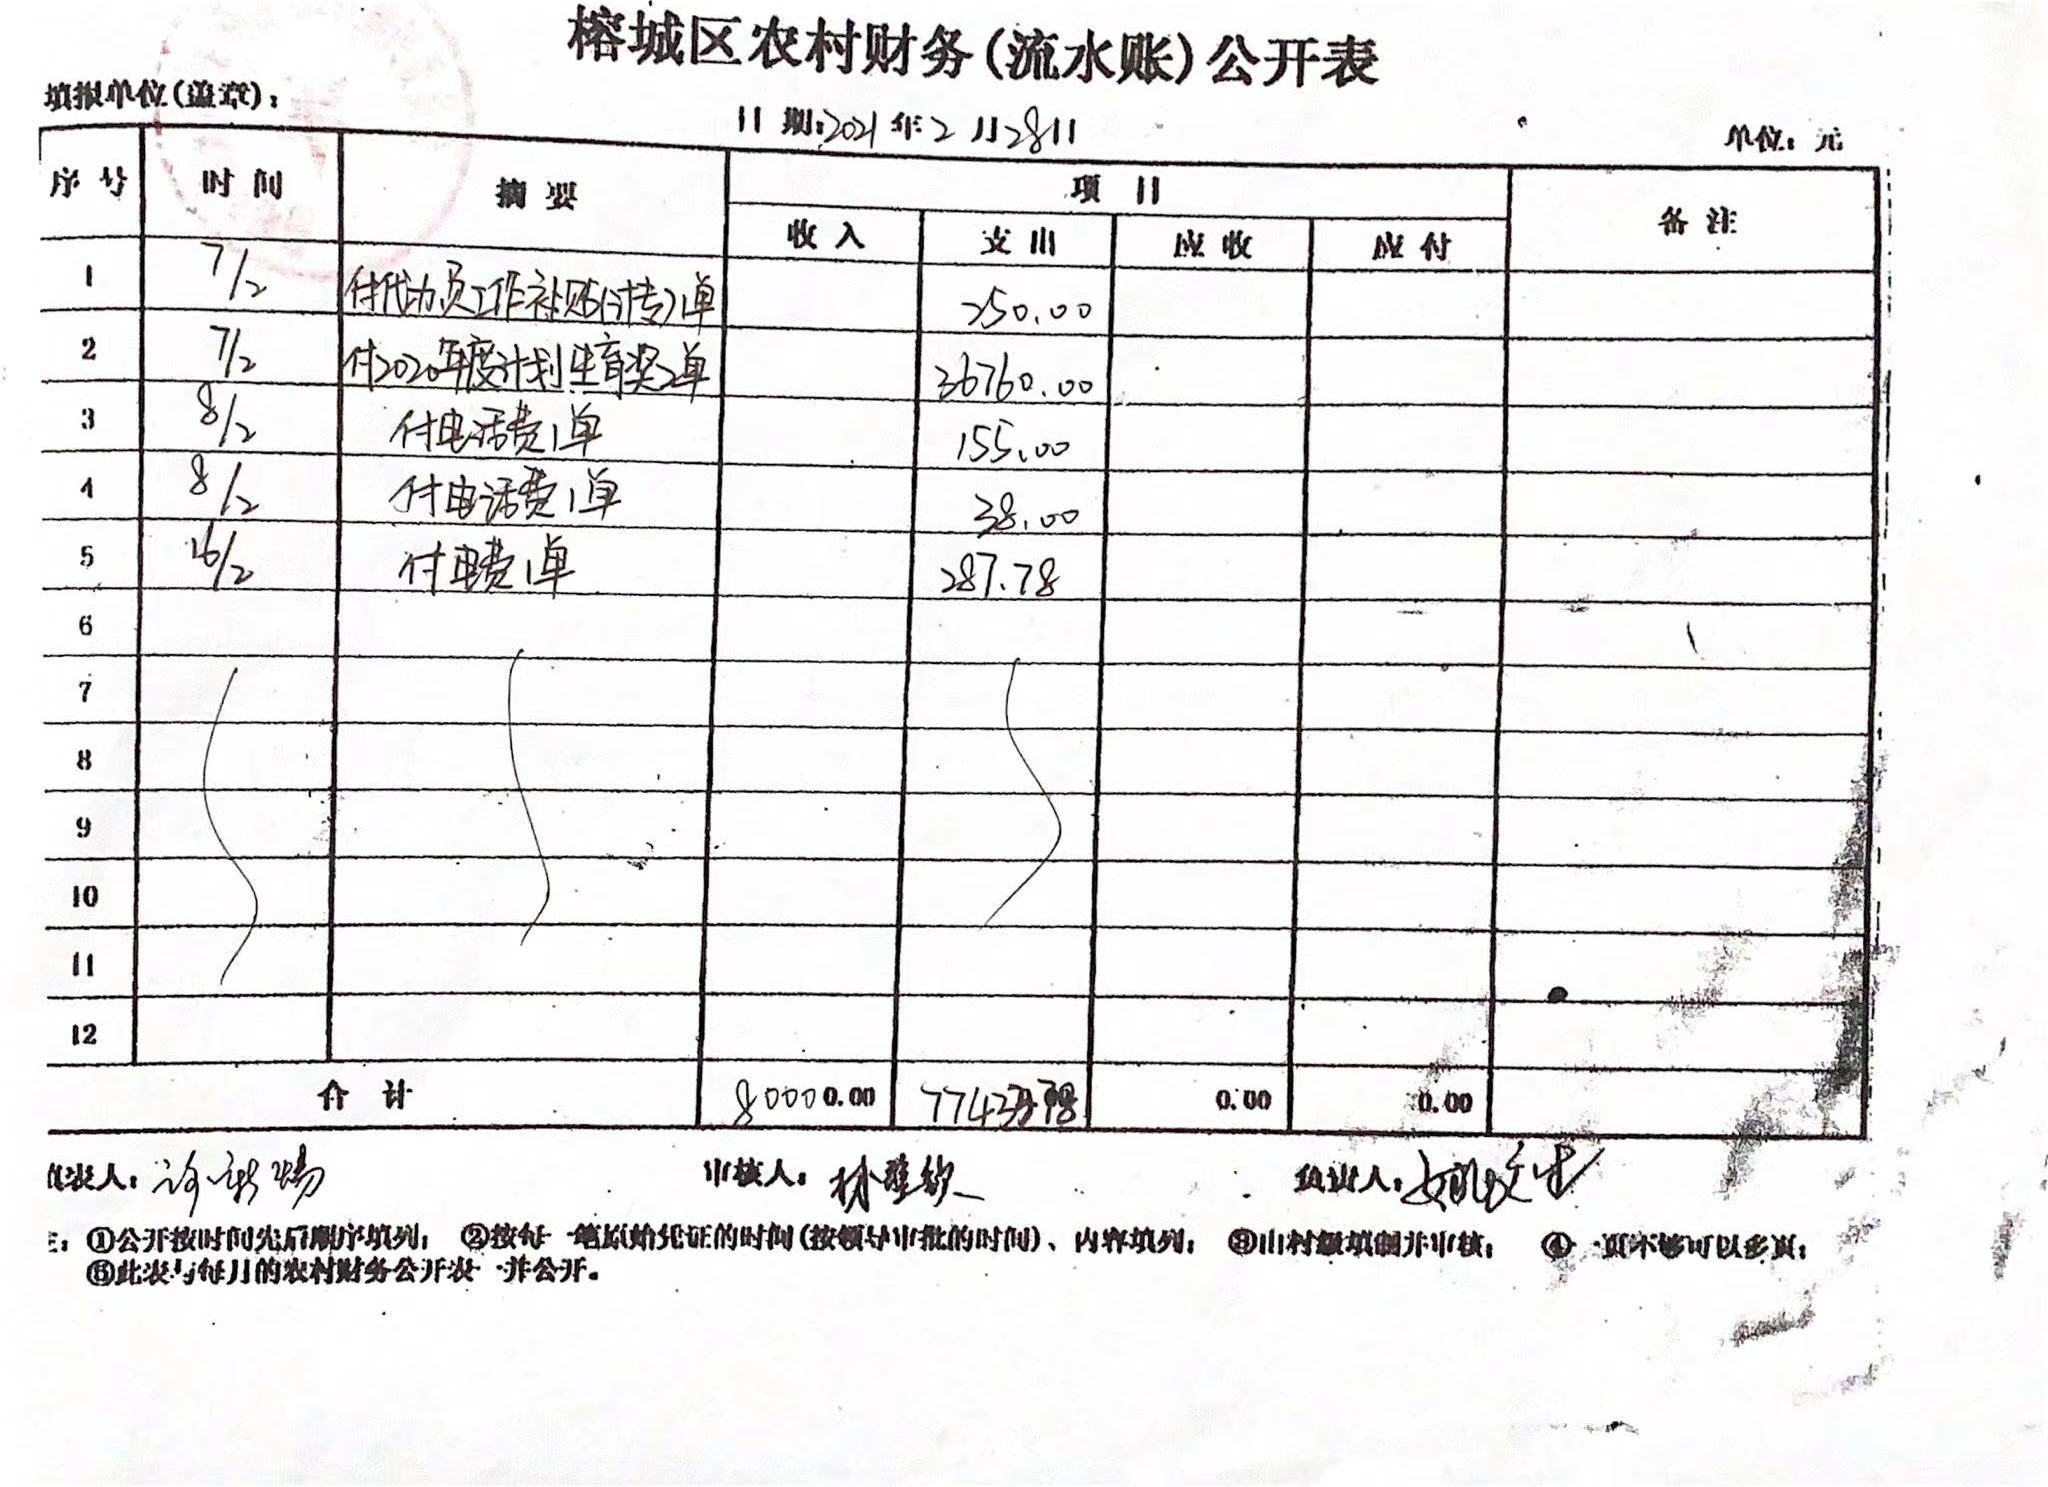 榕城区农村财务(流水账)公开表
填报单位(盖章):
日期:2021年2月28日 单位:元
序号 时间 摘要 项目 备注
收入 支出 应收 应付
1 7/2 付代办员工作补贴(计专)1单 250.00
2 7/2 付2020年度计划生育奖2单 36760.00
3 8/2 付电话费1单 155.00
4 8/2 付电话费1单 38.00
5 26/2 付电费1单 287.78
6
7
8
9
10
11
12
合计 80000.00 0.00 0.00
填表人: 审核人: 负责人:
注:①公开按时间先后顺序填列; ②按每一笔原始凭证的时间(按领导审批的时间)、内容填列; ③由村级填制并审核; ④一页不够可以多页;
⑤此表与每月的农村财务公开表一并公开。